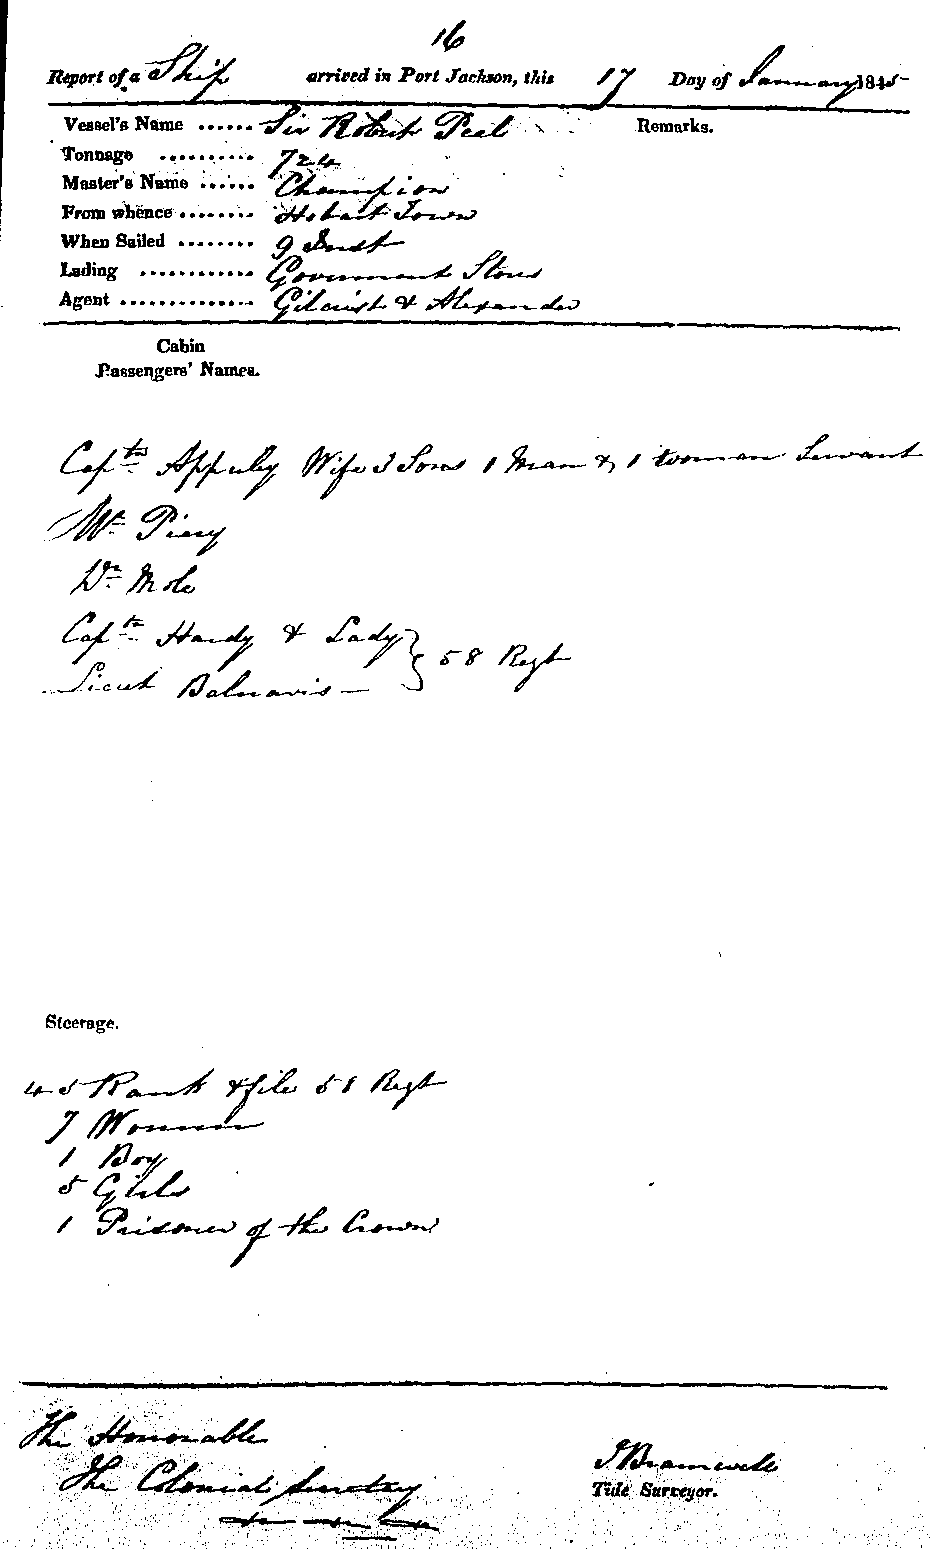 16
Report of a Ship arrived in Port Jackson, this 17 Day of January 1845
Vessel's Name ...... Sir Robert Peel Remarks.
Tonnage .......... 724
Master's Name ...... Champion
From whence ........ Hobart Town
When Sailed ........ 9 Inst
Lading ............ Government Stores
Agent .............. Gilcrist & Alexander
Cabin
Passengers' Names.
Captn Appleby Wife 3 Sons 1 Man & 1 woman Servant
Mr Piery
Dr Mole
Captn Hardy & Lady } 58 Regt
Lieut Balnavis —
Steerage.
45 Rank & file 58 Regt
7 Women
1 Boy
5 Girls
1 Prisoner of the Crown
The Honorable
The Colonial Secretary
J Bramwell
Tide Surveyor.